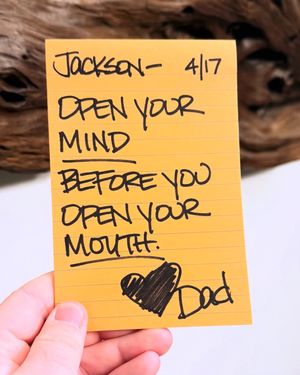 JACKSON- 4/17
OPEN YOUR
MIND
BEFORE YOU
OPEN YOUR
MOUTH.
Dad